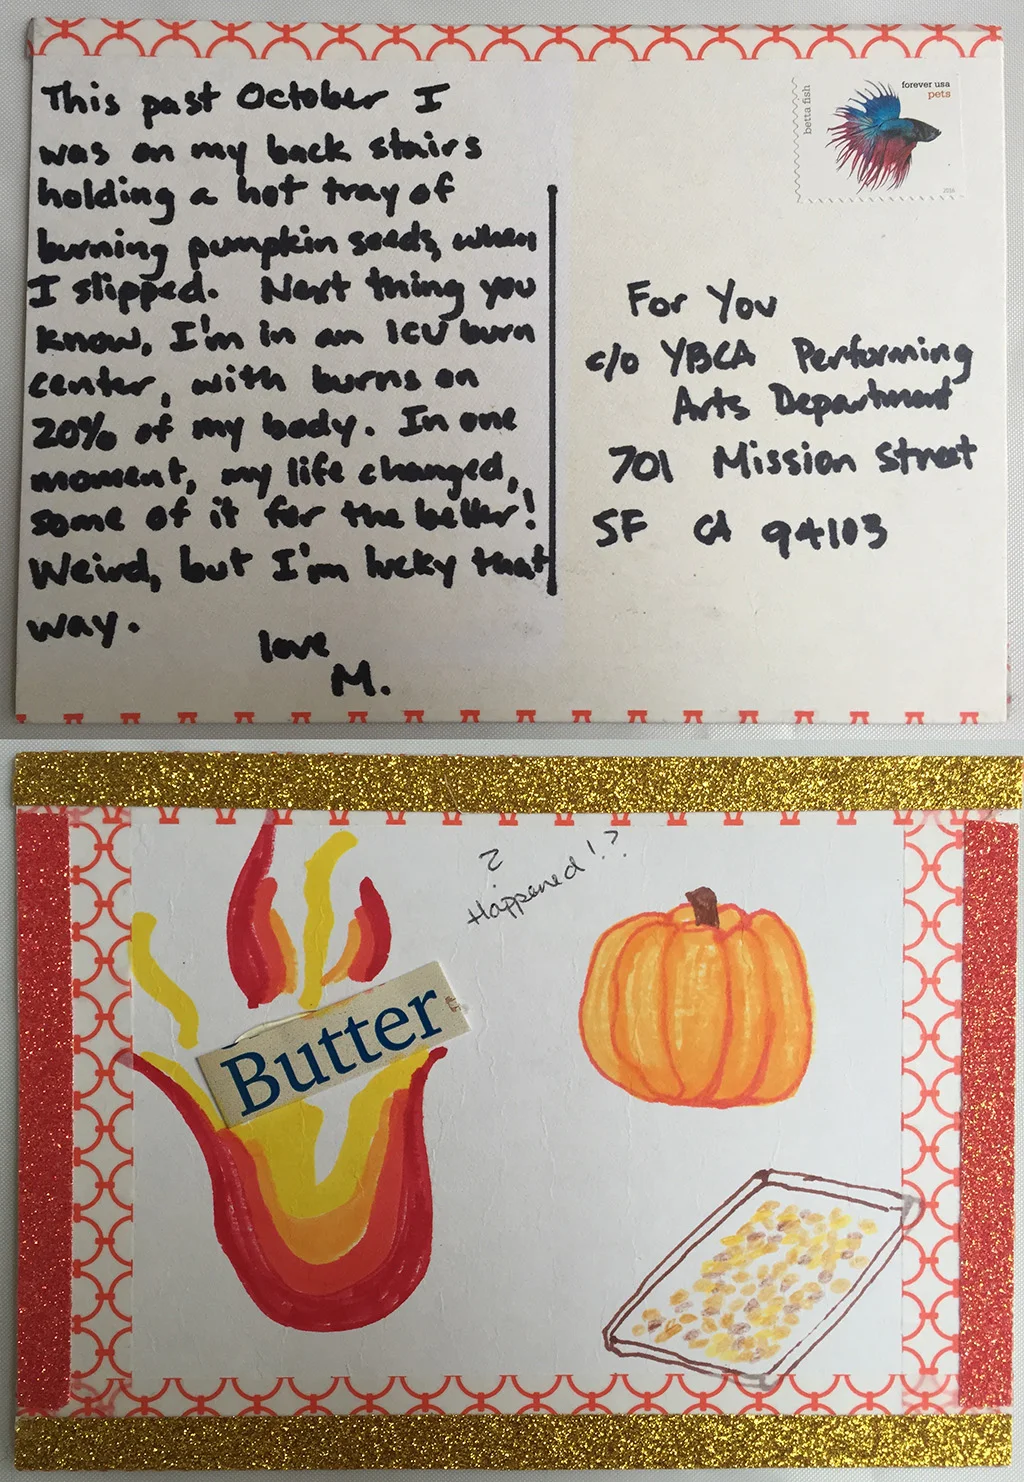 This past October I
was on my back stairs
holding a hot tray of
burning pumpkin seeds, when
I slipped. Next thing you
know, I'm in an ICU burn
center, with burns on
20% of my body. In one
moment, my life changed,
some of it for the better!
Weird, but I'm lucky that
way.
love
M.
betta fish
forever usa
pets
2016
For You
c/o YBCA Performing
Arts Department
701 Mission Street
SF CA 94103
?
Happened!?
Butter